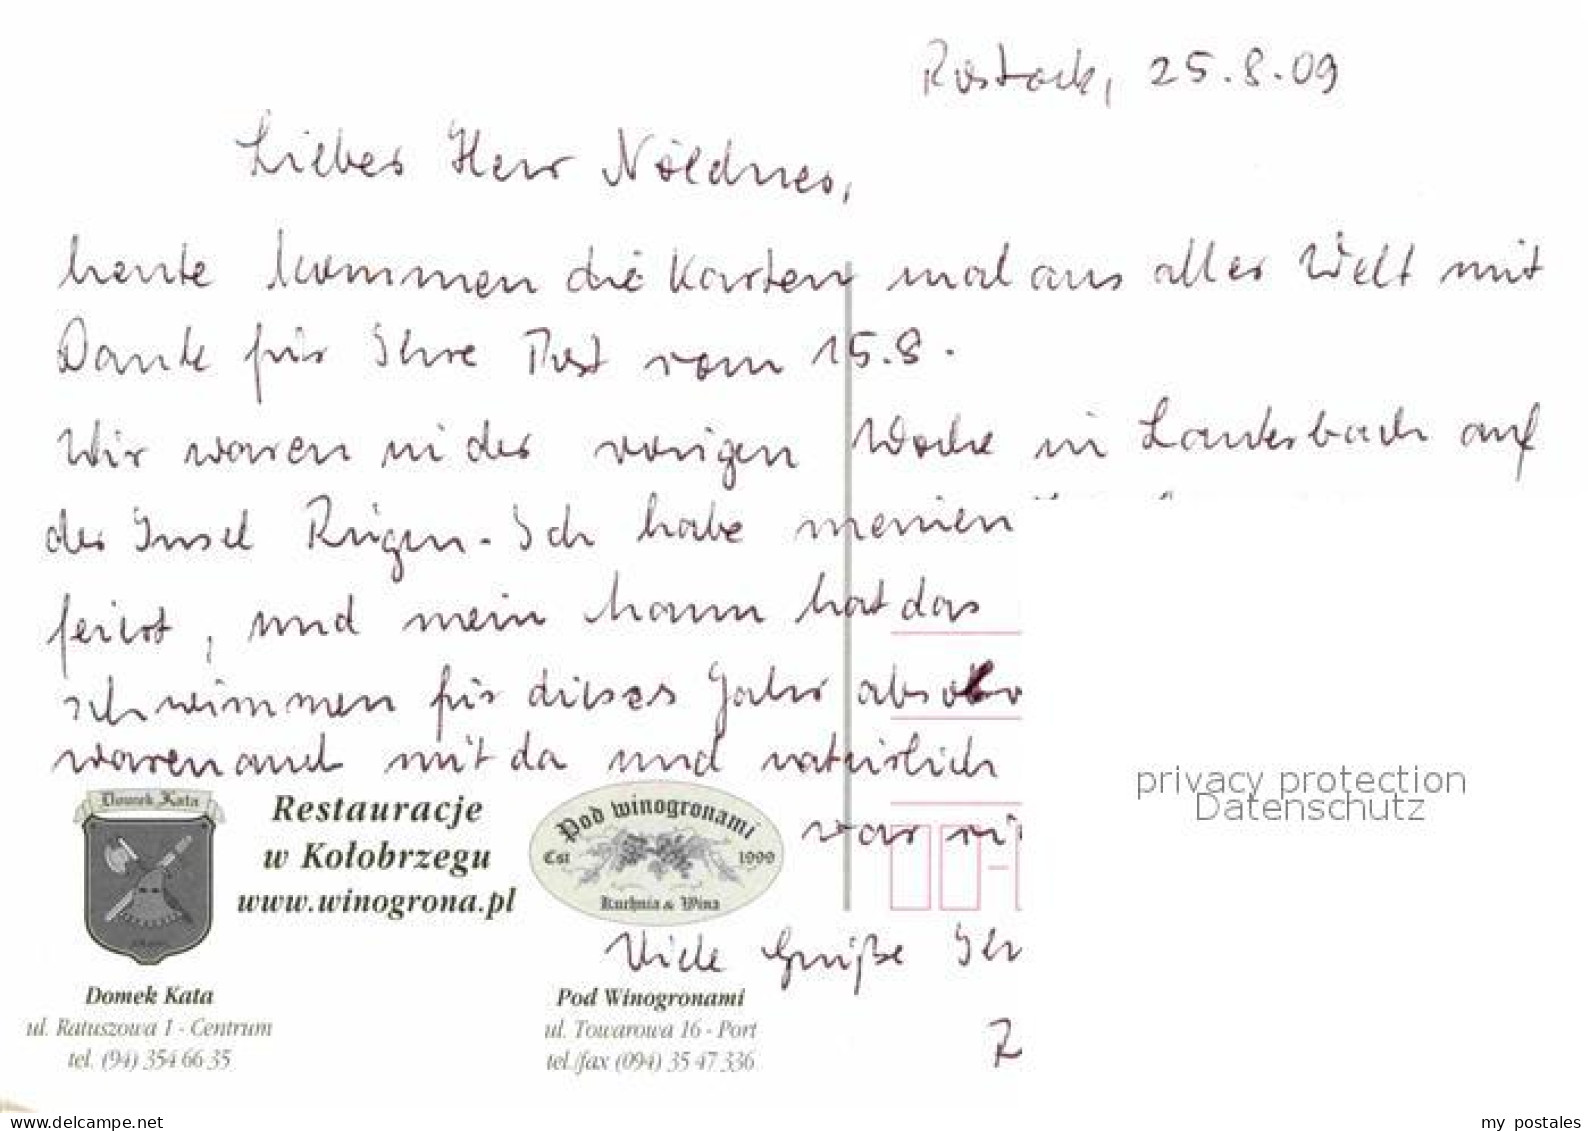 Rostock, 25.8.09
Lieber Herr Nöldner,
heute kommen die Karten mal aus aller Welt mit
Dank für Ihre Post vom 15.8.
Wir waren in der vorigen Woche in Lauterbach auf
der Insel Rügen. Ich habe meinen
feiert, und mein Mann hat das
schwimmen für dieses Jahr absolv
waren auch mit da und natürlich
war
Viele Grüße Ihr
Domek Kata
Restauracje
w Kołobrzegu
www.winogrona.pl
Pod winogronami
Est 1999
Kuchnia & Wina
Domek Kata
ul. Ratuszowa 1 - Centrum
tel. (94) 354 66 35
Pod Winogronami
ul. Towarowa 16 - Port
tel./fax (094) 35 47 336
privacy protection
Datenschutz
www.delcampe.net
my_postales